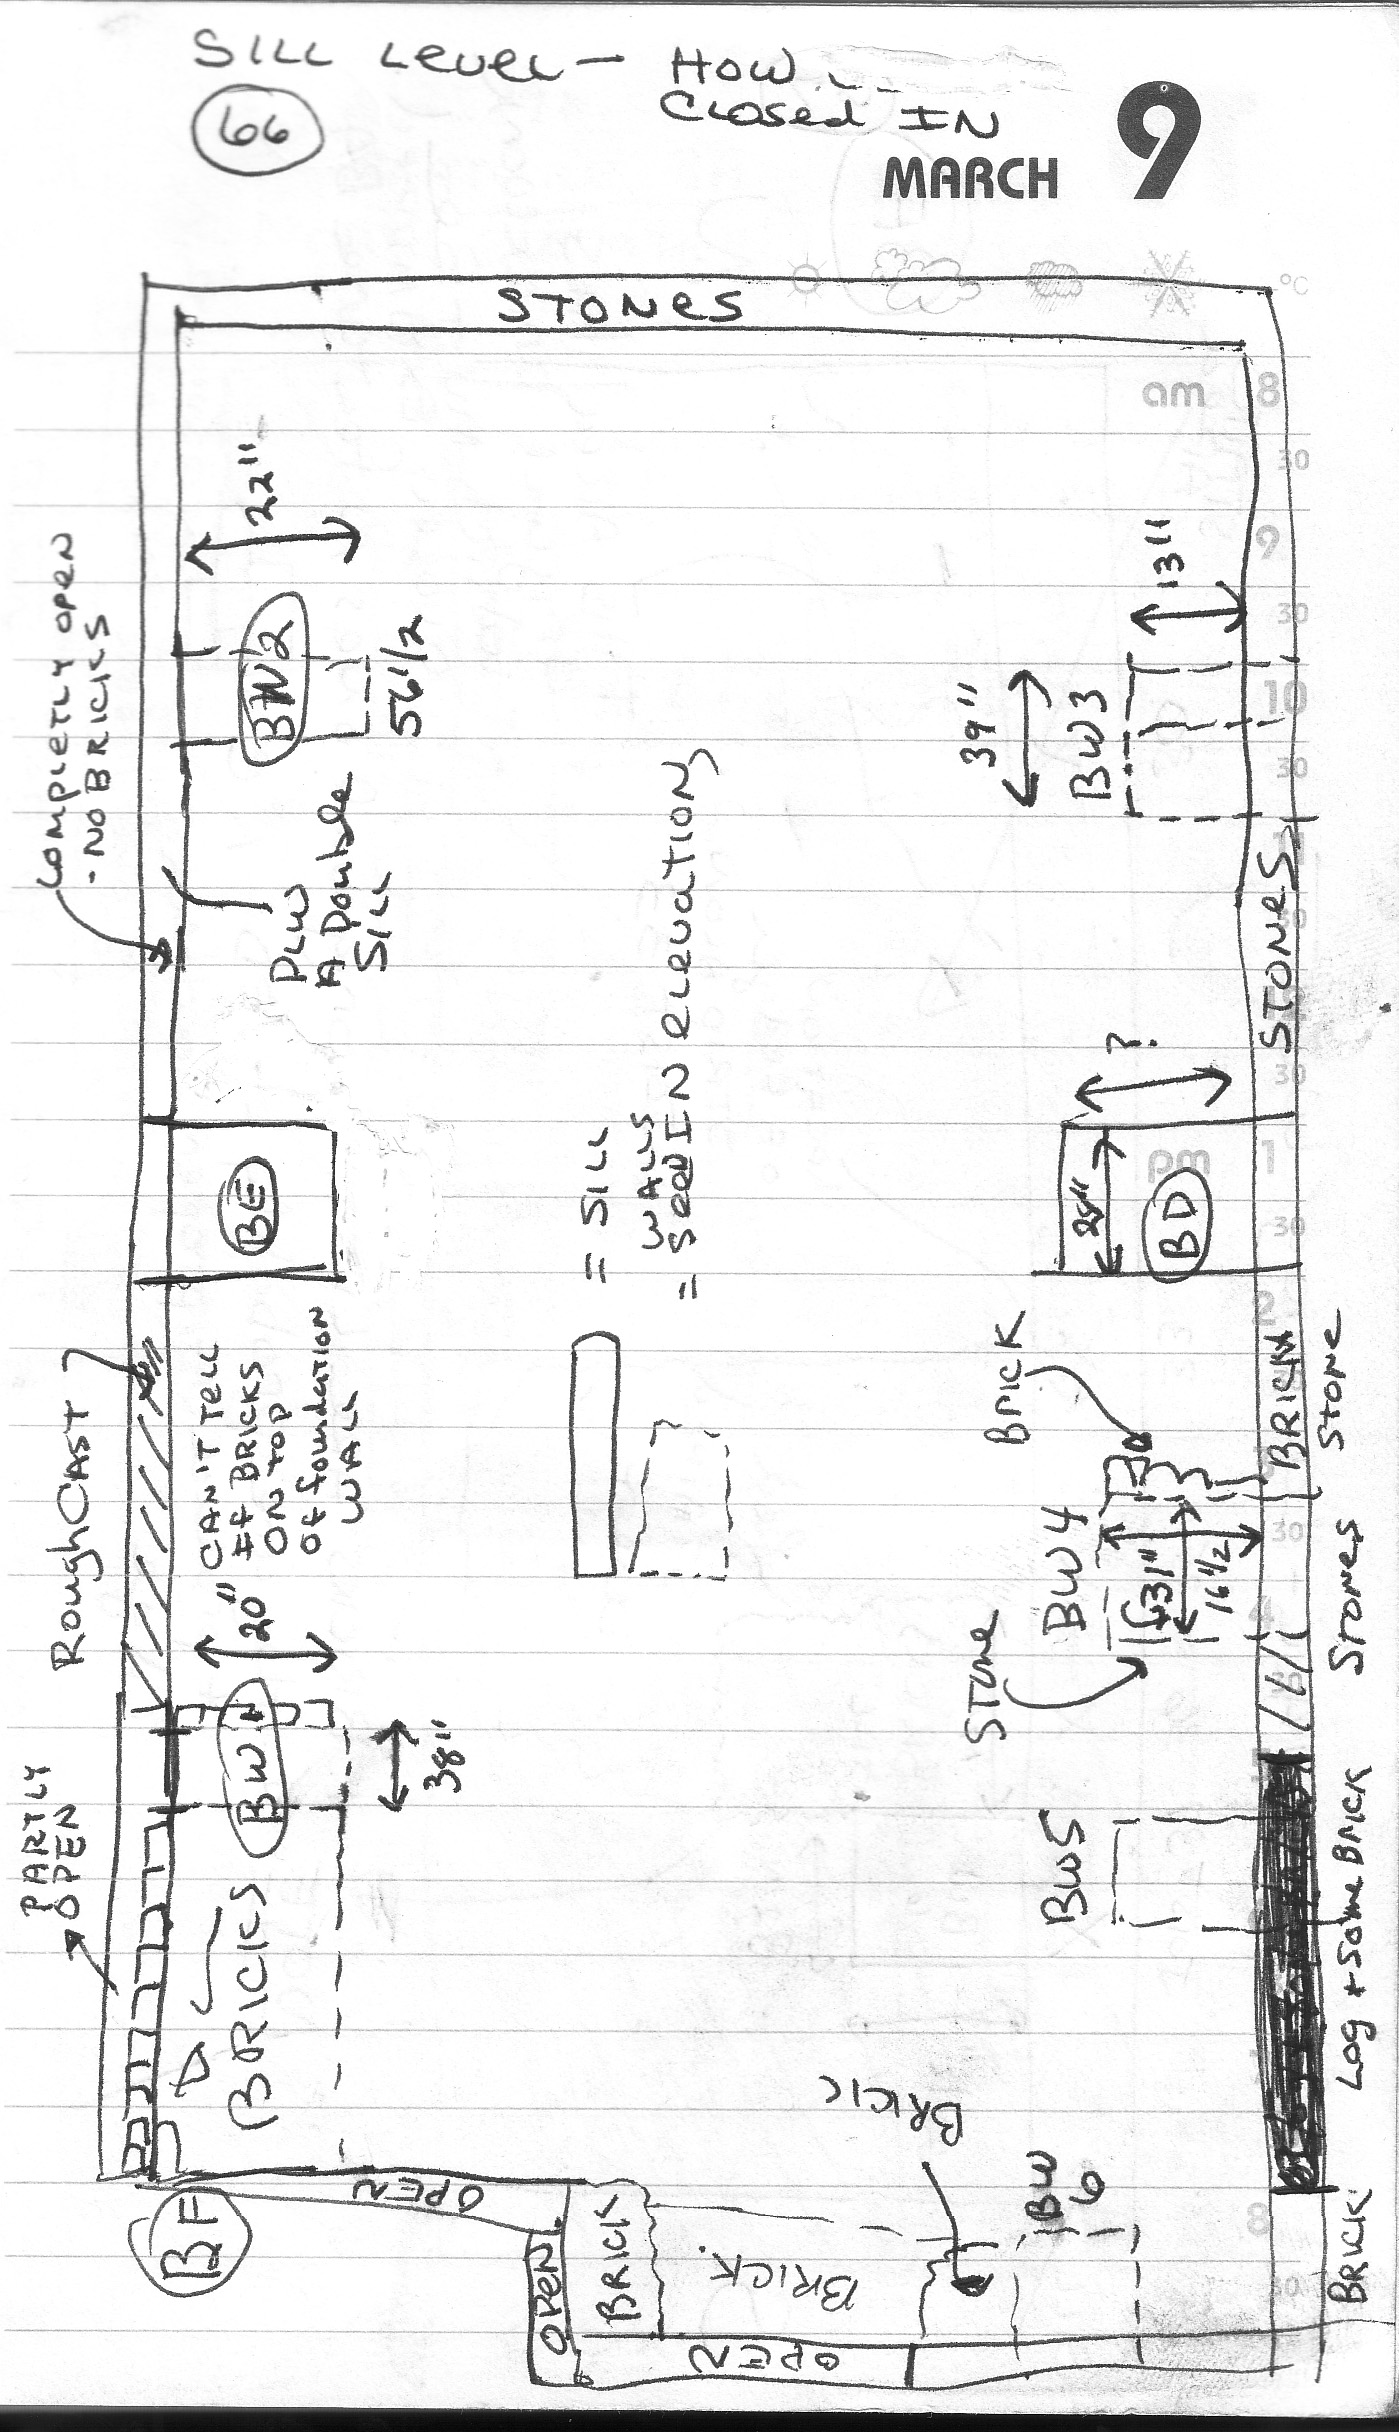 SILL Level - How
Closed IN
66
MARCH 9
STONES
°C
am
8
30
9
30
10
30
11
30
pm
1
30
2
30
4
8
30
COMPLETLY OPEN
- NO BRICKS
22"
BW2
56 1/2
PLW
A Double
SILL
13"
39"
BW3
STONES
BE
= SILL
WALLS
= Seen IN elevation
?
28"
BD
RoughCAST
CAN'T TELL
If BRICKS
ON TOP
Of foundation
WALL
20"
BW1
38"
BRICK
BRICK
STONE
BW4
31"
16 1/2
STONE
STONES
PARTLY
OPEN
BRICKS
BW5
Log + Some BRICK
BF
OPEN
OPEN
BRICK
BRICK.
BRICK
BW
6
OPEN
BRICK